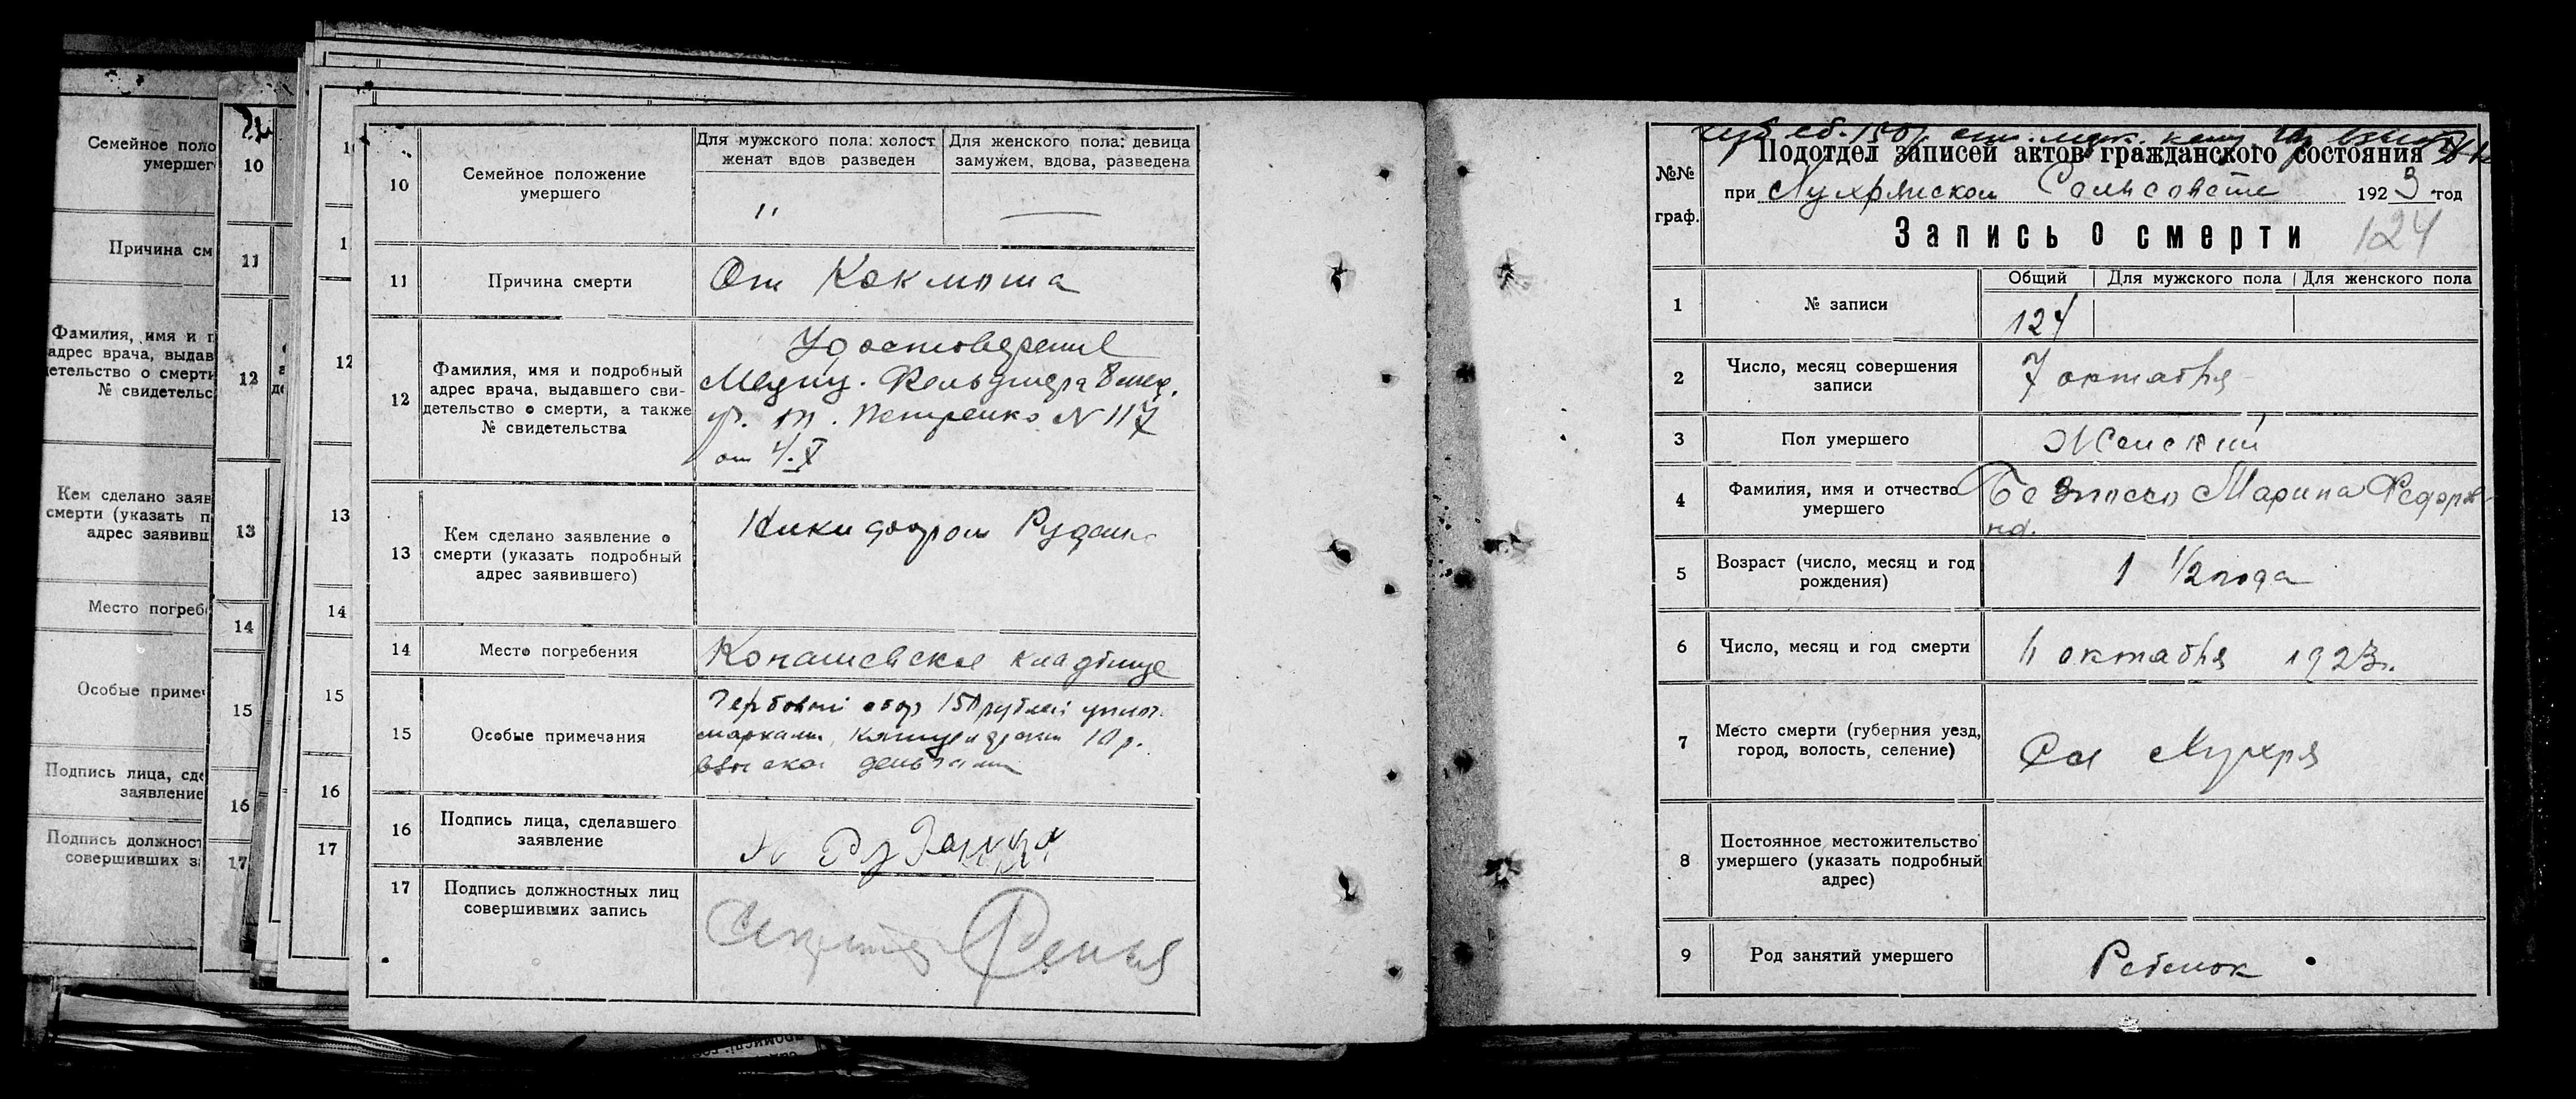 Семейное поло
умершег
Причина см
Фамилия, имя и п
адрес врача, выдав
детельство о смерти
№ свидетельс
Кем сделано заяв
смерти (указать п
адрес заявивш
Место погреб
Особые примеч
Подпись лица, сде
заявление
Подпись должност
совершивших з
10
11
12
13
14
15
16
17
12
13
14
15
16
17
10
Семейное положение
умершего
Для мужского пола: холост
женат вдов разведен
Для женского пола: девица
замужем, вдова, разведена
"
—
11
Причина смерти
От Коклюша
12
Фамилия, имя и подробный
адрес врача, выдавшего сви-
детельство о смерти, а также
№ свидетельства
Удостоверение
Медиц. Фельдшера
Петренко N 117
от 4.X
13
Кем сделано заявление о
смерти (указать подробный
адрес заявившего)
14
Место погребения
кладбище
15
Особые примечания
Гербовый сбор 150 рублей уплоч.
марками, 10 р.
деньгами
16
Подпись лица, сделавшего
заявление
17
Подпись должностных лиц
совершивших запись
№№
граф.
Подотдел записей актов гражданского состояния
при Мухрянском Сельсовете 1923 год
Запись о смерти 124
1
№ записи
Общий
Для мужского пола
Для женского пола
124
2
Число, месяц совершения
записи
7 октября
3
Пол умершего
Женский
4
Фамилия, имя и отчество
умершего
Безноско Марина Федоров-
на.
5
Возраст (число, месяц и год
рождения)
1 1/2 года
6
Число, месяц и год смерти
4 октября 1923 г.
7
Место смерти (губерния уезд,
город, волость, селение)
8
Постоянное местожительство
умершего (указать подробный
адрес)
9
Род занятий умершего
Ребенок